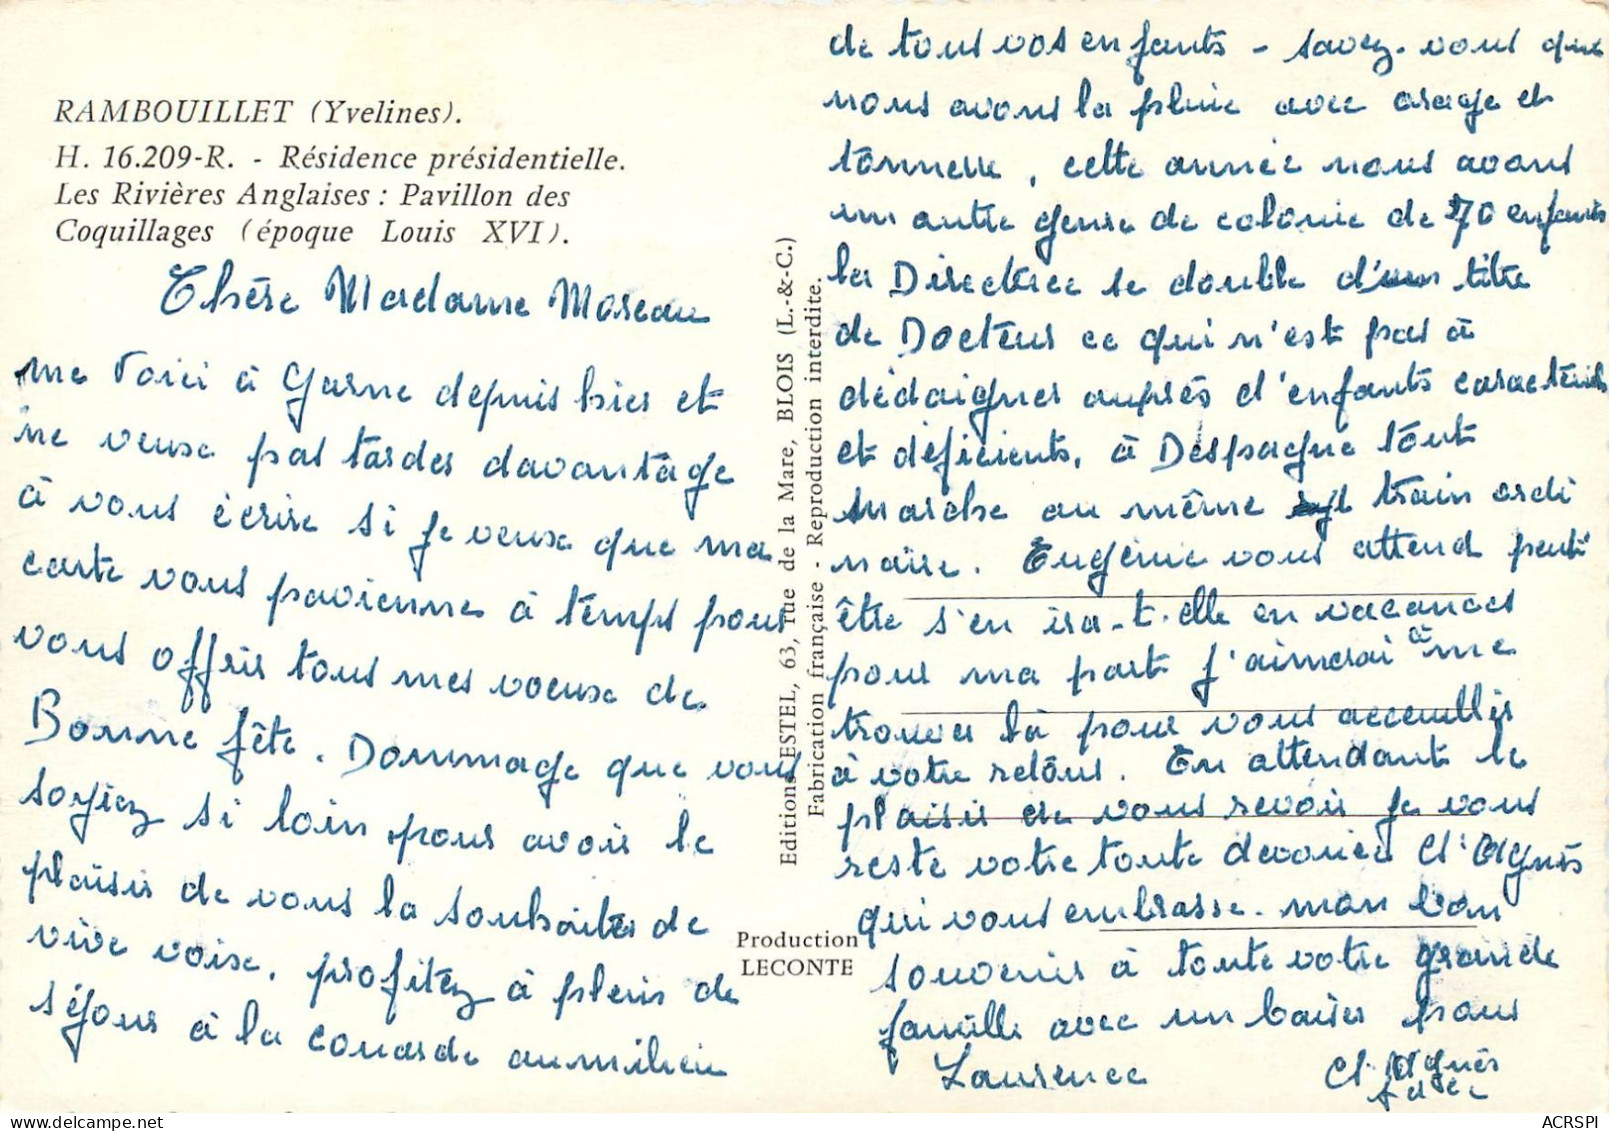 RAMBOUILLET (Yvelines).
H. 16.209-R. - Résidence présidentielle.
Les Rivières Anglaises : Pavillon des
Coquillages (époque Louis XVI).
Chère Madame Moreau
me voici à Garne depuis hier et
ne veux pas tarder davantage
à vous écrire si je veux que ma
carte vous parvienne à temps pour
vous offrir tous mes voeux de
Bonne fête. Dommage que vous
soyiez si loin pour avoir le
plaisir de vous la souhaiter de
vive voix, profitez à plein de
séjour à la couarde au milieu
de tous vos enfants - savez-vous que
nous avons la pluie avec orage et
tonnerre, cette année nous avons
un autre genre de colonie de 70 enfants
la Directrice se double d'un titre
de Docteur ce qui n'est pas à
dédaigner auprès d'enfants caractériels
et déficients, à Despagne tout
marche au même train ordi
naire. Eugénie vous attend peut
être s'en ira-t-elle en vacances
pour ma part j'aimerai à me
trouver là pour vous accueillir
à votre retour. En attendant le
plaisir de vous revoir je vous
reste votre toute dévouée Cl. Agnès
qui vous embrasse. mon bon
souvenir à toute votre grande
famille avec un baiser pour
Laurence
Cl. Agnès
Editions ESTEL, 63, rue de la Mare, BLOIS (L.-&-C.)
Fabrication française - Reproduction interdite.
Production
LECONTE
ACRSPI